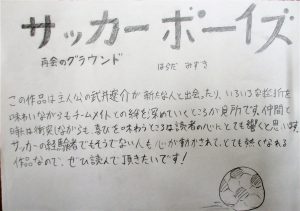 サッカーボーイズ
再会のグラウンド
はらだ みずき
この作品は主人公の武井遼介が新たな人と出会ったり、いろいろな挫折を
味わいながらもチームメイトとの絆を深めていくところが見所です。仲間と
時には衝突しながらも、喜びを味わうところは読者の心にとても響くと思います。
サッカーの経験者でもそうでない人も心が動かされて、とても熱くなれる
作品なので、ぜひ読んで頂きたいです!